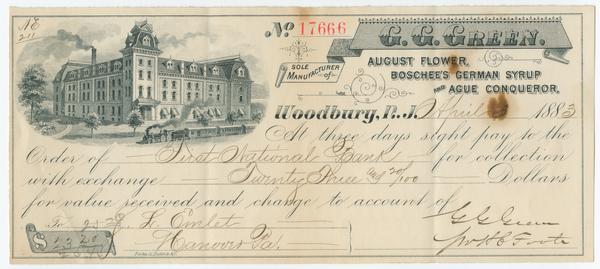 No. 17666
G. G. GREEN.
SOLE MANUFACTURER of
AUGUST FLOWER,
BOSCHEE'S GERMAN SYRUP
AND AGUE CONQUEROR.
Woodbury, N. J. April 1883
At three days sight pay to the
Order of First National Bank for collection
with exchange Twenty Three and 20/100 Dollars
for value received and charge to account of
To
Hanover Pa.
G G Green
$ 23 20